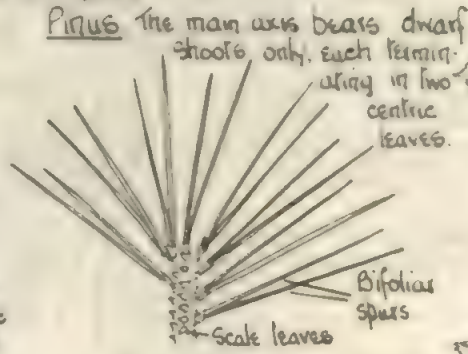 Pinus The main axis bears dwarf
shoots only, each termin-
ating in two
centric
leaves.
Bifoliar
spurs
Scale leaves